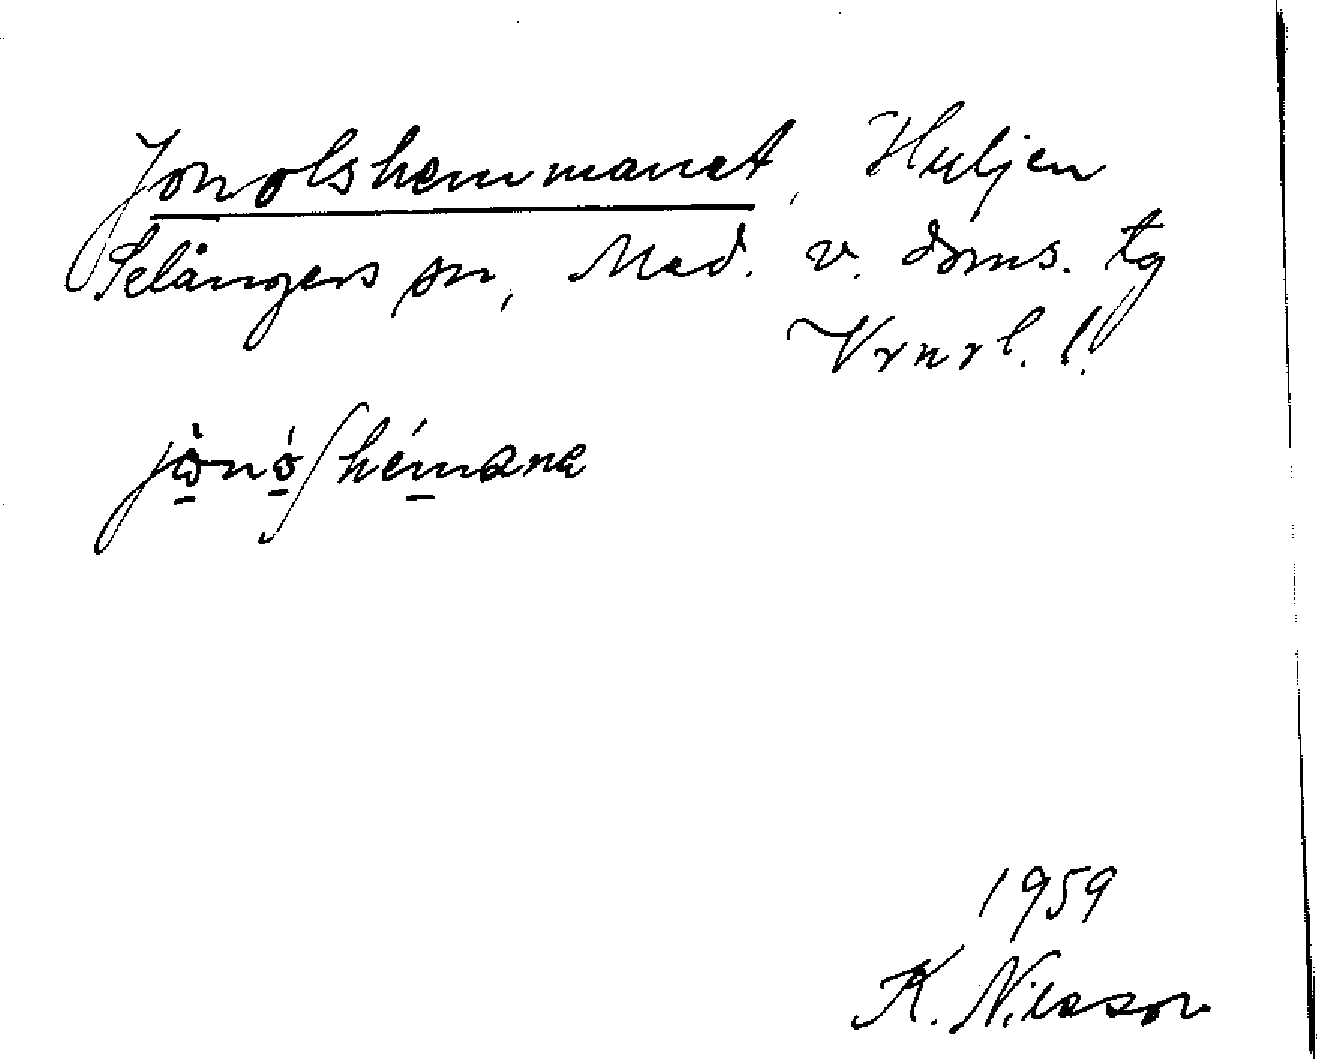 Jonolshemmanet, Huljen
Selångers sn, Med. v. doms. tg
Vrnrl. l.
jònóʃhémana
1959
K. Nilsson